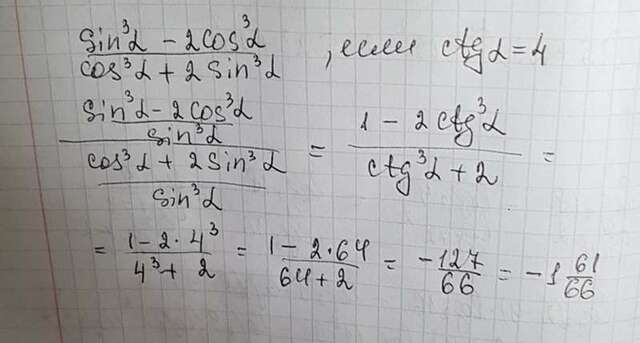 sin³α - 2cos³α / cos³α + 2 sin³α , если ctg α = 4
(sin³α - 2cos³α / sin³α) / (cos³α + 2 sin³α / sin³α) = 1 - 2 ctg³α / ctg³α + 2 =
= 1 - 2·4³ / 4³ + 2 = 1 - 2·64 / 64 + 2 = -127/66 = -1 61/66